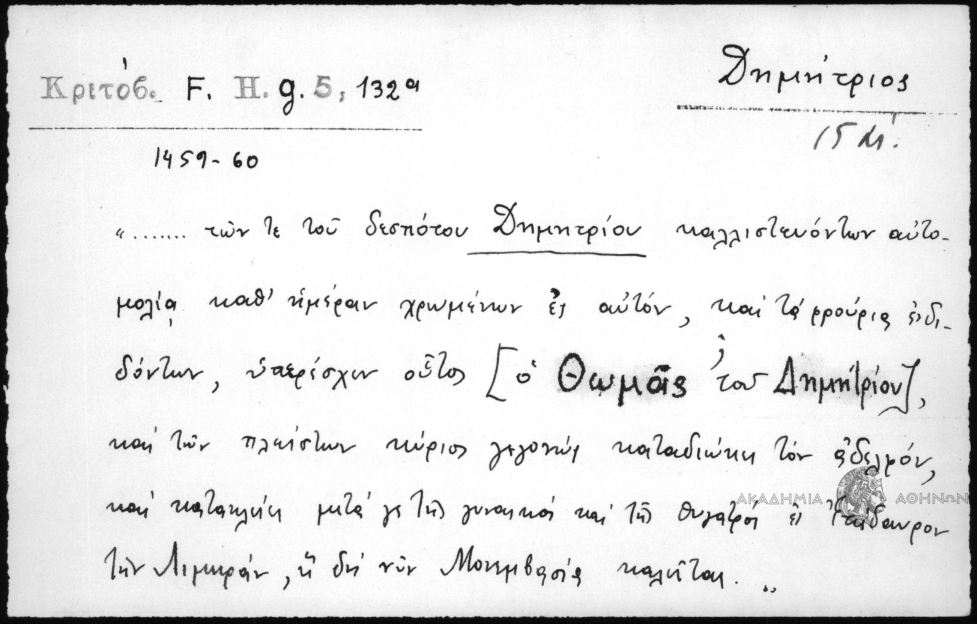 Κριτόβ. F. H. g. 5, 132ᵃ
Δημήτριος
1459-60
15 αἰ.
"....... τῶν τε τοῦ δεσπότου Δημητρίου καλλιστευόντων αὐτο-
μολίᾳ καθ' ἡμέραν χρωμένων ἐς αὐτόν, καὶ τὰ φρούρια ἐνδι-
δόντων, ὑπερίσχει οὗτος [ὁ Θωμᾶς, τοῦ Δημητρίου],
καὶ τῶν πλείστων κύριος γεγονώς καταδιώκει τὸν ἀδελφόν,
καὶ κατακλείει μετά γε τῆς γυναικός καὶ τῆς θυγατρός ἐς Ἐπίδαυρον
τὴν Λιμηράν, ἣ δὴ νῦν Μονεμβασία καλεῖται."
ΑΚΑΔΗΜΙΑ ΑΘΗΝΩΝ